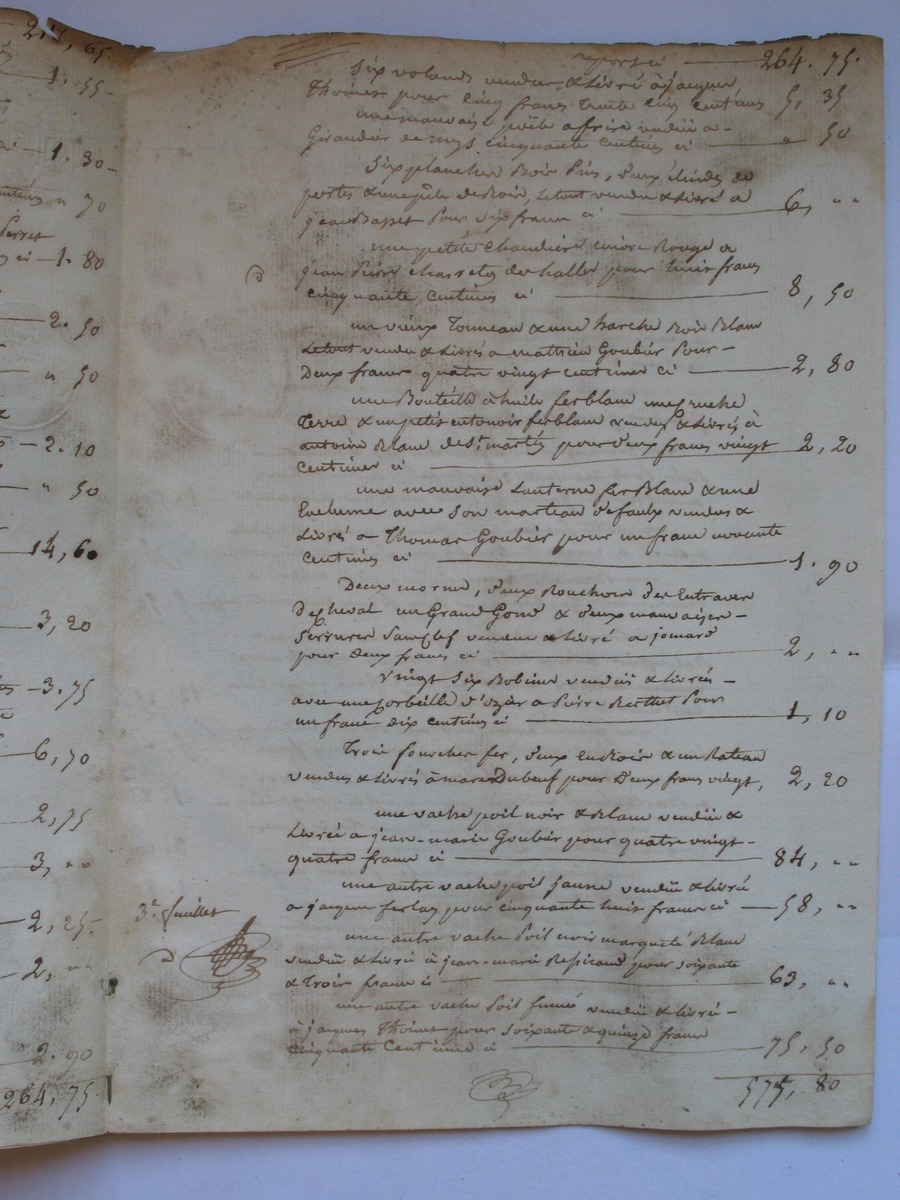 2.3, 65.
1. 55
1. 30
70
Perret
ci 1. 80
2. 50
" 50
2. 10
" 50
14, 60
3, 20
3. 75
6, 70
2, 75
3, ""
2, 25.
2, ""
2. 90
264, 75
report ci 264. 75.
Six volands vendus & livré à jacques
Thoinet pour cinq francs trente cinq centimes 5, 35
une mauvaise poële a frire vendüe a
Girardier de cinquante centimes ci " 50
Six planches Bois Pins, deux de
portes & une de Bois, le tout vendu & livré a
jean Basset Pour six francs ci 6, ""
une petite chaudière cuivre Rouge a
jean Pierre charretez des halles pour huit francs
cinquante centimes ci 8, 50
un vieux Tonneau & une harche Bois Blanc
Le tout vendu & Livrés a mathieu Goubier Pour
Deux francs quatre vingt centimes ci 2, 80
une Bouteille à huile ferblanc une cruche
Terre & un petit entonoir ferblanc vendus & livrés à
antoine Blanc de St martin pour deux francs vingt 2, 20
centimes ci
une mauvaise Lanterne fer Blanc & une
Enclume avec son marteau de faulx vendus &
Livrés a Thomas Goubier pour un franc novante
centimes ci 1. 90
Deux deux Bouchons des Entraves
de cheval un Grand Gond & deux mauvaises
Serrures sans clef vendu & livré a jomard
pour deux francs ci 2, ""
vingt Six Bobines vendus & livrés
avec une corbeille d'ozier a Pierre Berthet Pour
un franc dix centimes ci 1, 10
Trois fourches fer, deux & un Rateau
vendus & livrés à marc Dubeuf pour Deux francs vingt, 2, 20
une vache poil noir & Blanc vendüe &
Livrée a jean-marie Goubier pour quatre vingt
quatre francs ci 84, ""
une autre vache poil jaune vendüe & livré
a jacques ferlay pour cinquante huit francs ci 58, ""
une autre vache Poil noir marqueté Blanc
vendüe & livré à jean-marie pour soixante
& Trois francs ci 63, ""
une autre vache Poil fumé vendüe & livré
à jacques Thoinet pour soixante & quinze francs
cinquante Centimes ci 75, 50
575, 80
3e. feuillet